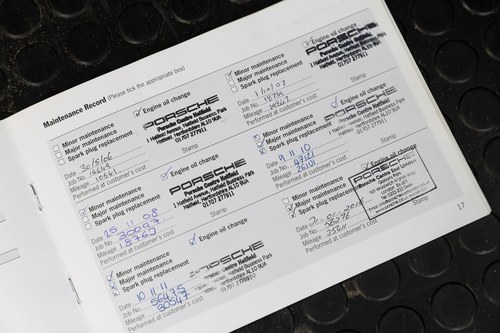 Maintenance Record (Please tick the appropriate box)
Minor maintenance
Major maintenance
Spark plug replacement
Engine oil change
PORSCHE
Porsche Centre Hatfield
1 Hatfield Avenue, Hatfield Business Park
Hatfield, Hertfordshire AL10 9UA
01707 277911
Date
Job No.
Mileage
Performed at customer's cost
Stamp
Minor maintenance
Major maintenance
Spark plug replacement
Engine oil change
PORSCHE
Porsche Centre Hatfield
1 Hatfield Avenue, Hatfield Business Park
Hatfield, Hertfordshire AL10 9UA
01707 277911
Date 25 11 08
Job No.
Mileage 18765
Performed at customer's cost
Stamp
Minor maintenance
Major maintenance
Spark plug replacement
Engine oil change
PORSCHE
Porsche Centre Hatfield
Hatfield Business Park
AL10 9UA
01707 277911
Date 10.11.11
Job No. 56475
Mileage
Performed at customer's cost
Stamp
Minor maintenance
Major maintenance
Spark plug replacement
Engine oil change
PORSCHE
Porsche Centre Hatfield
1 Hatfield Avenue, Hatfield Business Park
Hatfield, Hertfordshire AL10 9UA
01707 277911
Date
Job No.
Mileage
Performed at customer's cost
Stamp
Minor maintenance
Major maintenance
Spark plug replacement
Engine oil change
PORSCHE
Porsche Centre Hatfield
01707 277911
Date 9.11.10
Job No. 47121
Mileage
Performed at customer's cost
Stamp
Minor maintenance
Major maintenance
Spark plug replacement
Engine oil change
PORSCHE
Date
Job No.
Mileage
Performed at customer's cost
Stamp
17